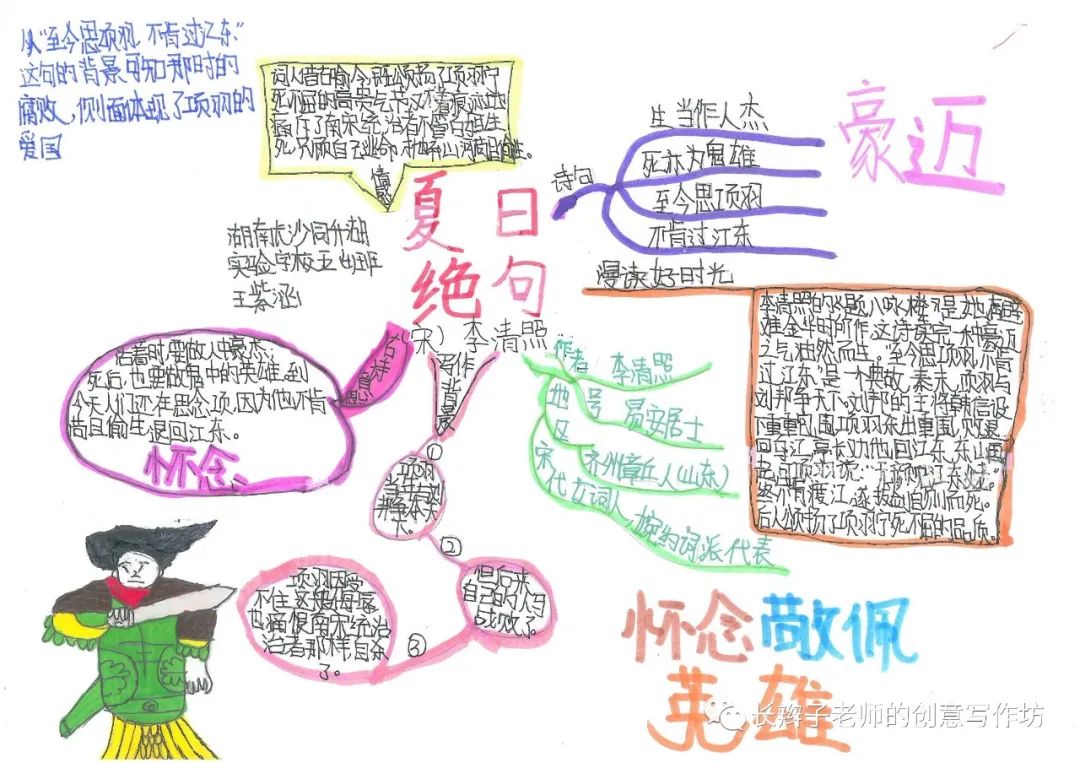 从“至今思项羽,不肯过江东”
这句的背景可知那时的
腐败,侧面体现了项羽的
爱国
词人借古喻今,颂扬了项羽宁
死不屈的高贵气
斥了南宋统治者不管百姓生
死,只顾自己逃命
情感
夏日
绝句
(宋)李清照
湖南长沙同升湖
实验学校五
王紫涵
诗句
生当作人杰
死亦为鬼雄
至今思项羽
不肯过江东
豪迈
漫读好时光
李清照的《题八咏楼》是她避
难金华时所作。这诗读完一种豪迈
之气油然而生。“至今思项羽,不肯
过江东”是一个典故,秦末,项羽与
刘邦争天下,刘邦的王将韩信设
下重重包围,项羽东出重围,败退
回乌江,亭长劝他回江东,东山再
起,可项羽说:“无颜见江东父老。”
终不肯渡江,遂拔剑自刎而死。
后人颂扬了项羽宁死不屈的品质。
古诗意思
活着时,要做人中豪杰;
死后,也要做鬼中的英雄,到
今天人们还在思念项,因为他不肯
苟且偷生,退回江东。
怀念
写作背景
①
项羽
当年与刘
邦争夺天
下。
②
但后来
自己的人马
战败了。
③
项羽因受
不住这般侮辱,
也痛恨南宋统治
治者那样自杀
了。
作者 李清照
她号 易安居士
是 齐州章丘人(山东)
宋代女词人,婉约词派代表
怀念敬佩
英雄
长辫子老师的创意写作坊